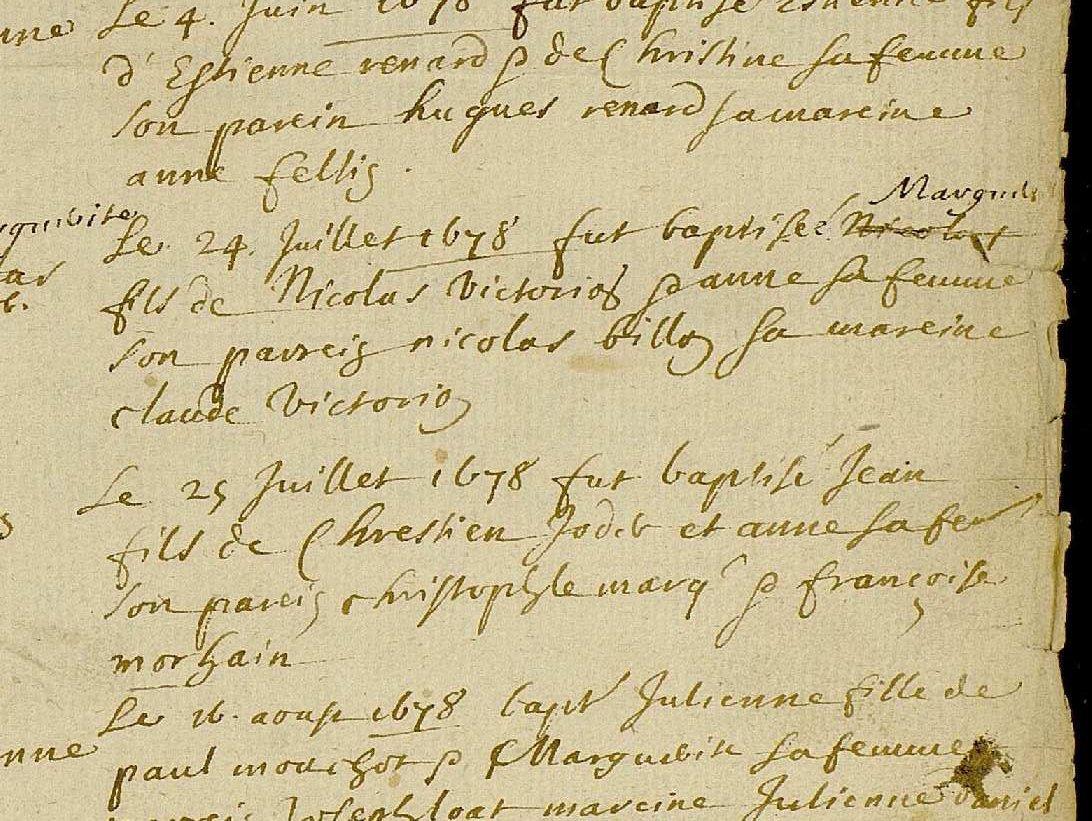 Le 4. Juin 1678 fut baptisé Estienne fils
d'Estienne renard & de Christine sa femme
son parein hugues renard sa mareine
anne fellis.
Marguerite
Le 24. Juillet 1678 fut baptisée Nicolas
fils de Nicolas Victorion & anne sa femme
son parrein nicolas billon sa mareine
claude Victorion
Le 25 Juillet 1678 fut baptisé Jean
fils de Chrestien et anne sa fe
son parein christophle marq & françoise
morhain
Le 16. aoust 1678 bapt Julienne fille de
paul mouchot & Marguerite sa femme
mareine Julienne daniel